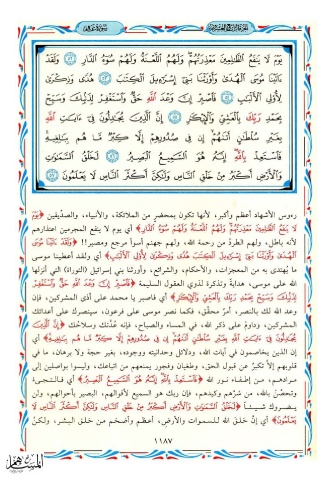 يَوْمَ لَا يَنفَعُ الظَّالِمِينَ مَعْذِرَتُهُمْ وَلَهُمُ اللَّعْنَةُ وَلَهُمْ سُوءُ الدَّارِ ٥٢ وَلَقَدْ
ءَاتَيْنَا مُوسَى الْهُدَىٰ وَأَوْرَثْنَا بَنِي إِسْرَٰٓءِيلَ الْكِتَٰبَ ٥٣ هُدًى وَذِكْرَىٰ
لِأُو۟لِي الْأَلْبَٰبِ ٥٤ فَاصْبِرْ إِنَّ وَعْدَ اللَّهِ حَقٌّ وَاسْتَغْفِرْ لِذَنۢبِكَ وَسَبِّحْ
بِحَمْدِ رَبِّكَ بِالْعَشِيِّ وَالْإِبْكَٰرِ ٥٥ إِنَّ الَّذِينَ يُجَٰدِلُونَ فِيٓ ءَايَٰتِ اللَّهِ
بِغَيْرِ سُلْطَٰنٍ أَتَىٰهُمْ إِن فِي صُدُورِهِمْ إِلَّا كِبْرٌ مَّا هُم بِبَٰلِغِيهِ
فَاسْتَعِذْ بِاللَّهِ إِنَّهُ هُوَ السَّمِيعُ الْبَصِيرُ ٥٦ لَخَلْقُ السَّمَٰوَٰتِ
وَالْأَرْضِ أَكْبَرُ مِنْ خَلْقِ النَّاسِ وَلَٰكِنَّ أَكْثَرَ النَّاسِ لَا يَعْلَمُونَ ٥٧
رءوس الأشهاد أعظم وأكبر، لأنها تكون بمحضرٍ من الملائكة، والأنبياء، والصدِّيقين ﴿يَوْمَ
لَا يَنفَعُ الظَّالِمِينَ مَعْذِرَتُهُمْ وَلَهُمُ اللَّعْنَةُ وَلَهُمْ سُوءُ الدَّارِ﴾ أي يوم لا ينفع المجرمين اعتذارهم
لأنه باطل، ولهم الطردُ من رحمة الله، ولهم جهنم أسوأ مرجع ومصير!! ﴿وَلَقَدْ ءَاتَيْنَا مُوسَى
الْهُدَىٰ وَأَوْرَثْنَا بَنِي إِسْرَٰٓءِيلَ الْكِتَٰبَ هُدًى وَذِكْرَىٰ لِأُو۟لِي الْأَلْبَٰبِ﴾ أي ولقد أعطينا موسى
ما يُهتدى به من المعجزات، والأحكام، والشرائع، وأورثنا بني إسرائيل (التوراة) التي أنزلها
الله على موسى، هدايةً وتذكرة لذوي العقول السليمة ﴿فَاصْبِرْ إِنَّ وَعْدَ اللَّهِ حَقٌّ وَاسْتَغْفِرْ
لِذَنۢبِكَ وَسَبِّحْ بِحَمْدِ رَبِّكَ بِالْعَشِيِّ وَالْإِبْكَٰرِ﴾ أي فاصبر يا محمد على أذى المشركين، فإن
وعد الله لك بالنصر، أمرٌ محقَّق، فكما نصر موسى على فرعون، سينصرك على أعدائك
المشركين، وداومْ على ذكر الله، في المساء والصباح، فإنه عُدَّتك وسلاحك ﴿إِنَّ الَّذِينَ
يُجَٰدِلُونَ فِيٓ ءَايَٰتِ اللَّهِ بِغَيْرِ سُلْطَٰنٍ أَتَىٰهُمْ إِن فِي صُدُورِهِمْ إِلَّا كِبْرٌ مَّا هُم بِبَٰلِغِيهِ﴾ أي
إن الذين يخاصمون في آيات الله، ودلائل وحدانيته ووجوده، بغير حجة ولا برهان، ما في
قلوبهم إلاَّ تكبرٌ عن قبول الحق، وطغيان وفجور يمنعهم من اتباعك، وليسوا بواصلين إلى
مرادهم، من إطفاء نور الله ﴿فَاسْتَعِذْ بِاللَّهِ إِنَّهُ هُوَ السَّمِيعُ الْبَصِيرُ﴾ أي فالتجىء
وتحصَّنْ بالله، من شرِّهم وكيدهم، فإن ربك هو السميع لأقوالهم، البصير بأحوالهم، ولن
يضروك شيئاً ﴿لَخَلْقُ السَّمَٰوَٰتِ وَالْأَرْضِ أَكْبَرُ مِنْ خَلْقِ النَّاسِ وَلَٰكِنَّ أَكْثَرَ النَّاسِ لَا
يَعْلَمُونَ﴾ أي إنَّ خلقَ الله للسموات والأرض، أعظم وأضخم من خلق البشر، ولكنَّ
١١٨٧